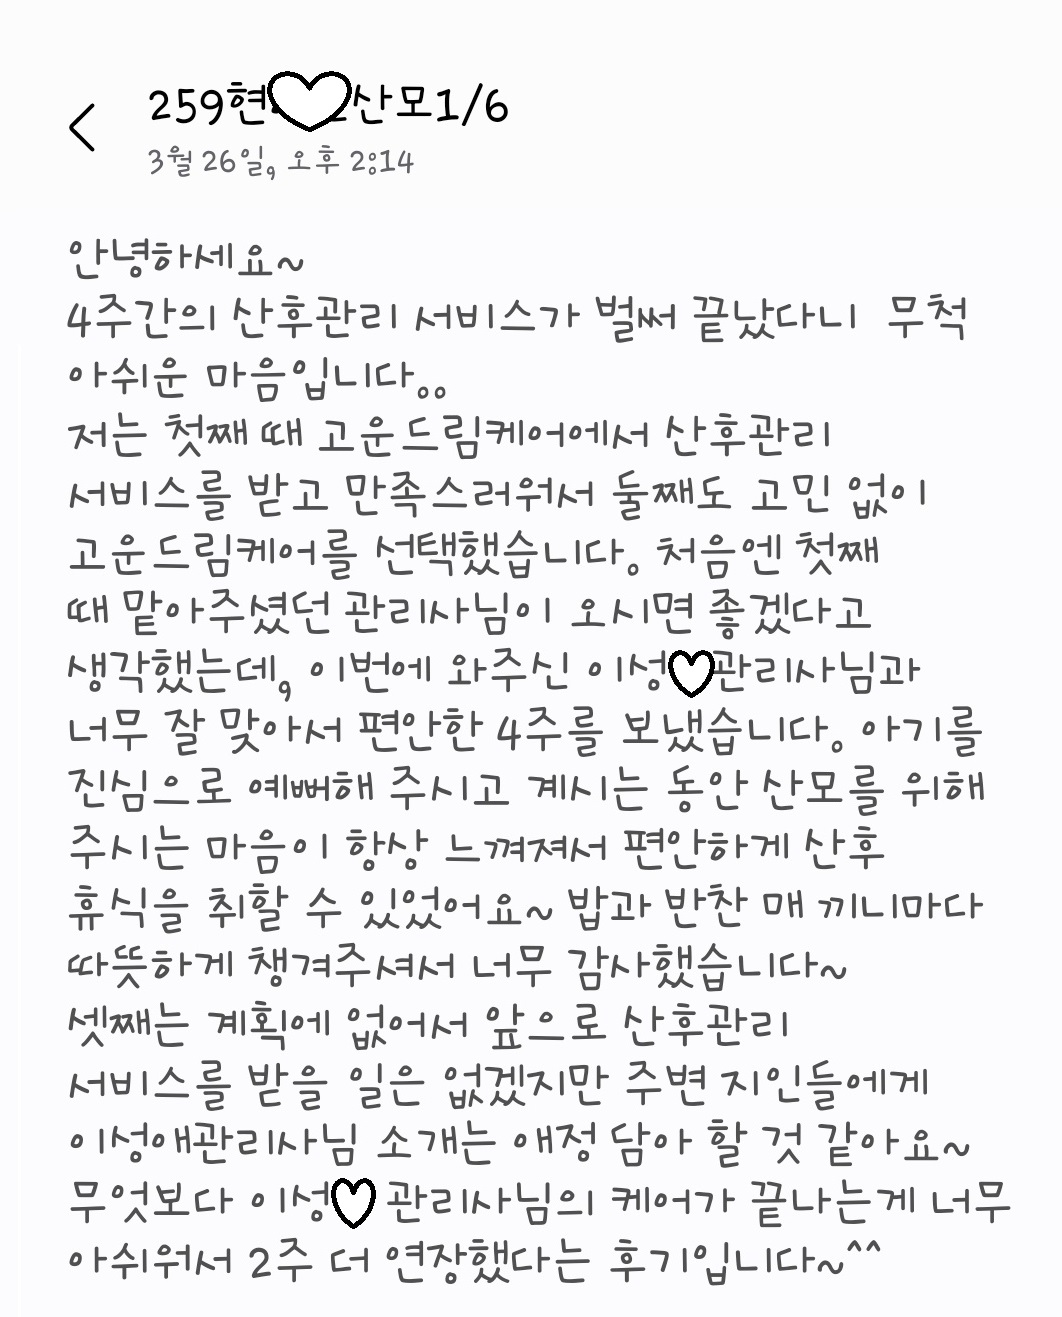 259현 산모1/6
3월 26일, 오후 2:14
안녕하세요~
4주간의 산후관리 서비스가 벌써 끝났다니 무척
아쉬운 마음입니다..
저는 첫째 때 고운드림케어에서 산후관리
서비스를 받고 만족스러워서 둘째도 고민 없이
고운드림케어를 선택했습니다. 처음엔 첫째
때 맡아주셨던 관리사님이 오시면 좋겠다고
생각했는데, 이번에 와주신 이성♡관리사님과
너무 잘 맞아서 편안한 4주를 보냈습니다. 아기를
진심으로 예뻐해 주시고 계시는 동안 산모를 위해
주시는 마음이 항상 느껴져서 편안하게 산후
휴식을 취할 수 있었어요~ 밥과 반찬 매 끼니마다
따뜻하게 챙겨주셔서 너무 감사했습니다~
셋째는 계획에 없어서 앞으로 산후관리
서비스를 받을 일은 없겠지만 주변 지인들에게
이성애관리사님 소개는 애정 담아 할 것 같아요~
무엇보다 이성♡ 관리사님의 케어가 끝나는게 너무
아쉬워서 2주 더 연장했다는 후기입니다~^^